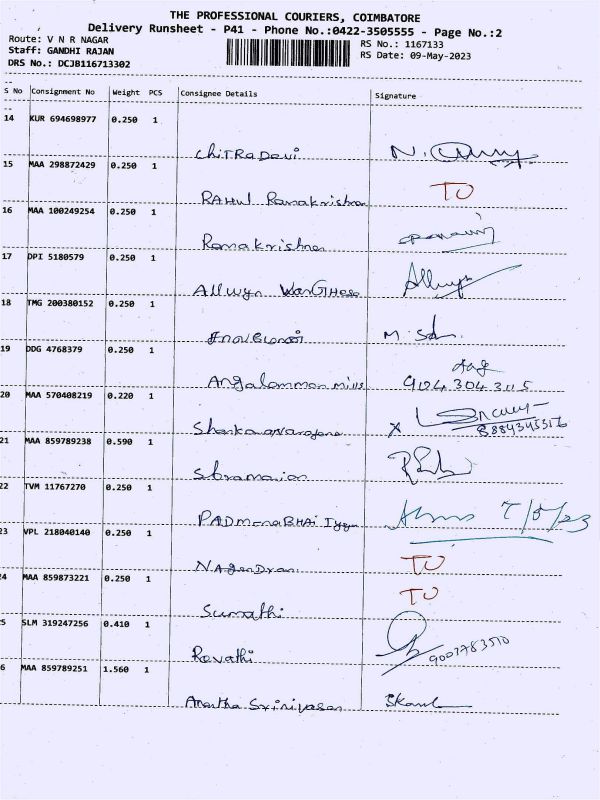 THE PROFESSIONAL COURIERS, COIMBATORE
Delivery Runsheet - P41 - Phone No.:0422-3505555 - Page No.:2
Route: V N R NAGAR
Staff: GANDHI RAJAN
DRS No.: DCJB116713302
RS No.: 1167133
RS Date: 09-May-2023
S No Consignment No Weight PCS Consignee Details Signature
14 KUR 694698977 0.250 1
ChiTRaDevi N.
15 MAA 298872429 0.250 1
RAHUL Ramakrishnan TO
16 MAA 100249254 0.250 1
Ramakrishna
17 DPI 5180579 0.250 1
Allwyn VarGHese Allwyn
18 TMG 200380152 0.250 1
M.
19 DDG 4768379 0.250 1
Angalamman mills 9124 304 3115
20 MAA 570408219 0.220 1
X
21 MAA 859789238 0.590 1
22 TVM 11767270 0.250 1
PADmanaBHAi Iyer 7/5/23
23 VPL 218040140 0.250 1
NAgenDran TO
4 MAA 859873221 0.250 1
Sumathi TO
5 SLM 319247256 0.410 1
Revathi
6 MAA 859789251 1.560 1
Anantha Srinivasan